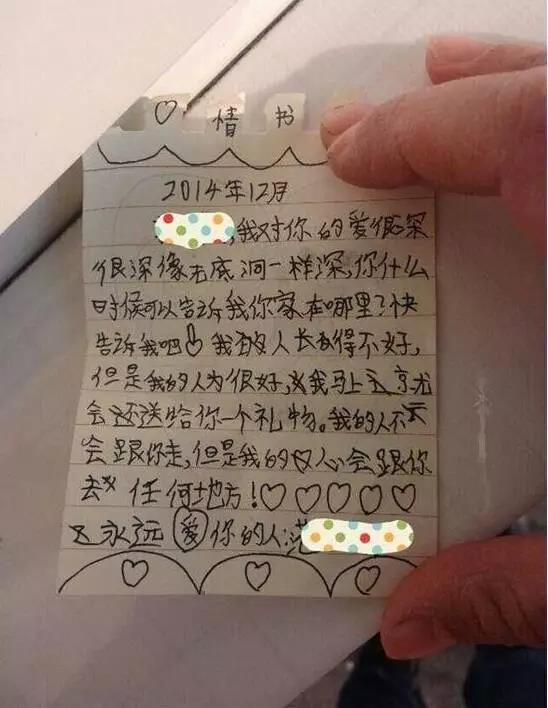 ♡ 情书
2014年12月
,我对你的爱很深
很深像无底洞一样深,你什么
时候可以告诉我你家在哪里?快
告诉我吧 我的人长的得不好,
但是我的人为很好,我马上就
会还送给你一个礼物。我的人不
会跟你走,但是我的心会跟你
去 任何地方!♡♡♡♡♡
永远爱你的人: